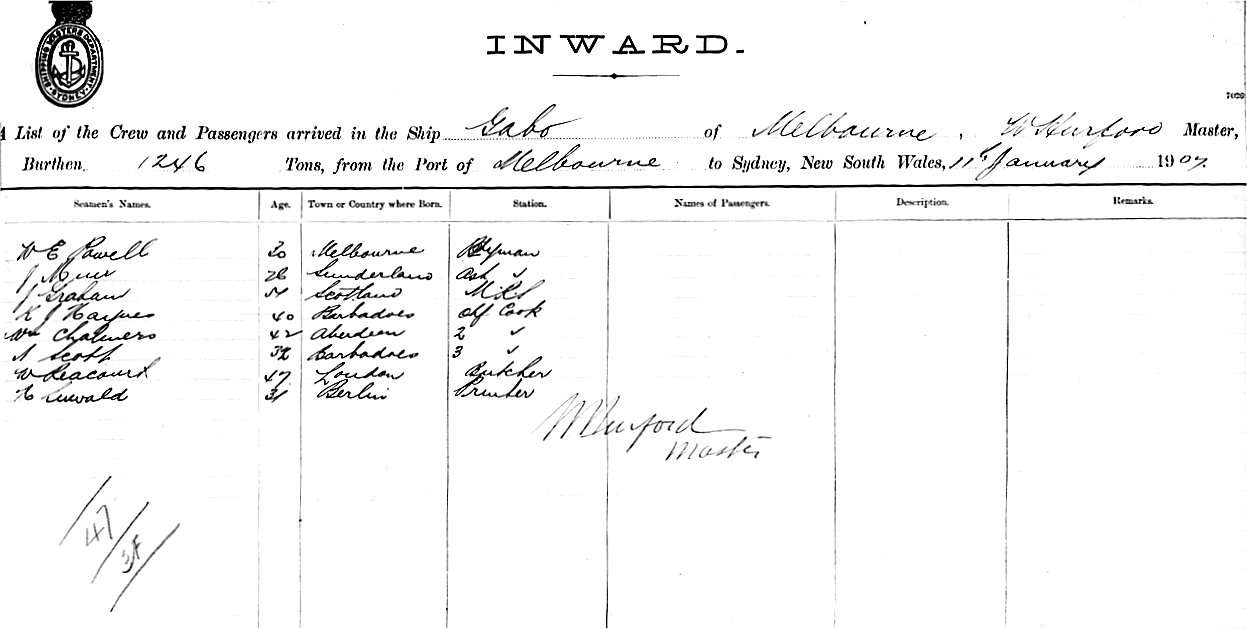 SHIPPING MASTERS DEPARTMENT SYDNEY
INWARD.
7029
List of the Crew and Passengers arrived in the Ship Gabo of Melbourne, W Hurford Master,
Burthen 1246 Tons, from the Port of Melbourne to Sydney, New South Wales, 11th January 1907
Seamen's Names. Age. Town or Country where Born. Station. Names of Passengers. Description. Remarks.
W E Powell 30 Melbourne
J Muir 26 Sunderland Ast "
J Graham 51 Scotland
K J Haynes 40 Barbadoes Chf Cook
Wm Chalmers 42 Aberdeen 2 "
A Scott 32 Barbadoes 3 "
W 47 London Butcher
31 Berlin Printer
W Hurford
Master
47
3F